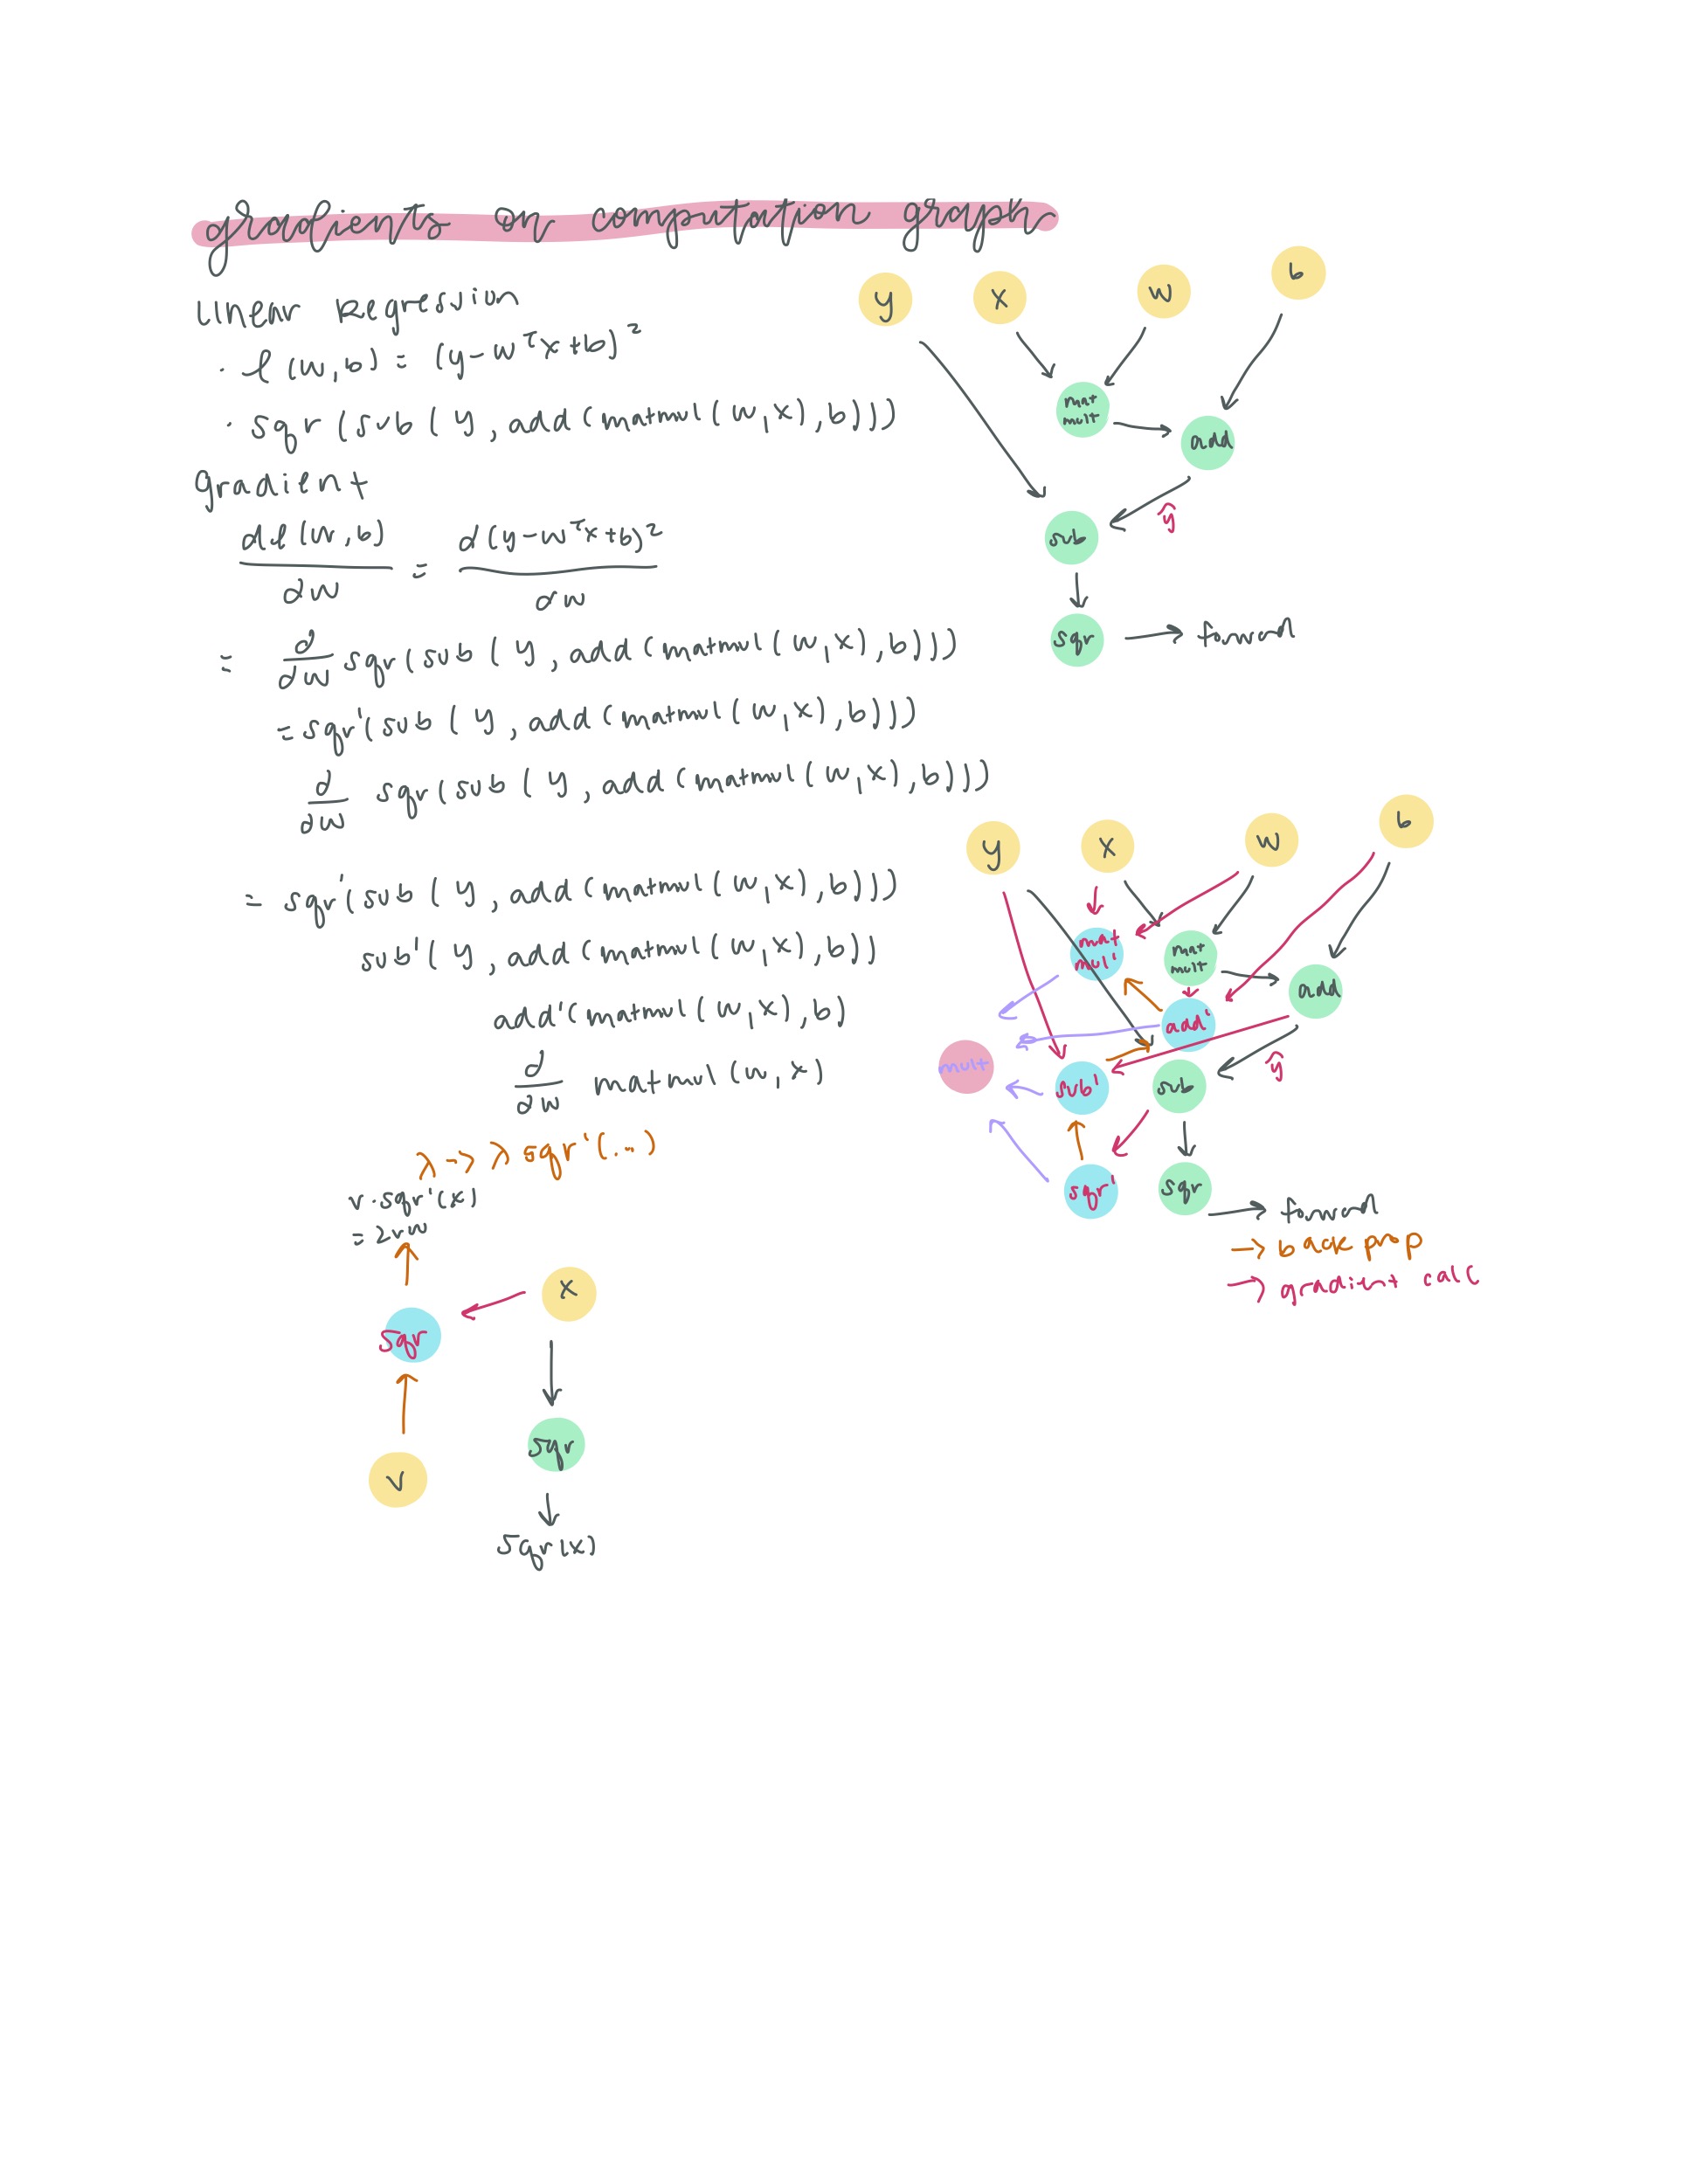 gradients on computation graph
linear Regression
· l(w,b) = (y-wᵀx+b)²
· sqr(sub(y, add(matmul(w,x),b)))
gradient
dl(w,b)/dw = d(y-wᵀx+b)²/dw
= d/dw sqr(sub(y, add(matmul(w,x),b)))
= sqr'(sub(y, add(matmul(w,x),b)))
d/dw sqr(sub(y, add(matmul(w,x),b)))
= sqr'(sub(y, add(matmul(w,x),b)))
sub'(y, add(matmul(w,x),b))
add'(matmul(w,x),b)
d/dw matmul(w,x)
λ -> λ sqr'(...)
v·sqr'(x)
= 2vw
x
sqr
sqr
v
sqr(x)
y x w b
mat
mult
add
ŷ
sub
sqr → forward
y x w b
mat
mul'
mat
mult
add
add'
mult
sub'
sub
ŷ
sqr'
sqr
→ forward
→ back prop
→ gradient calc